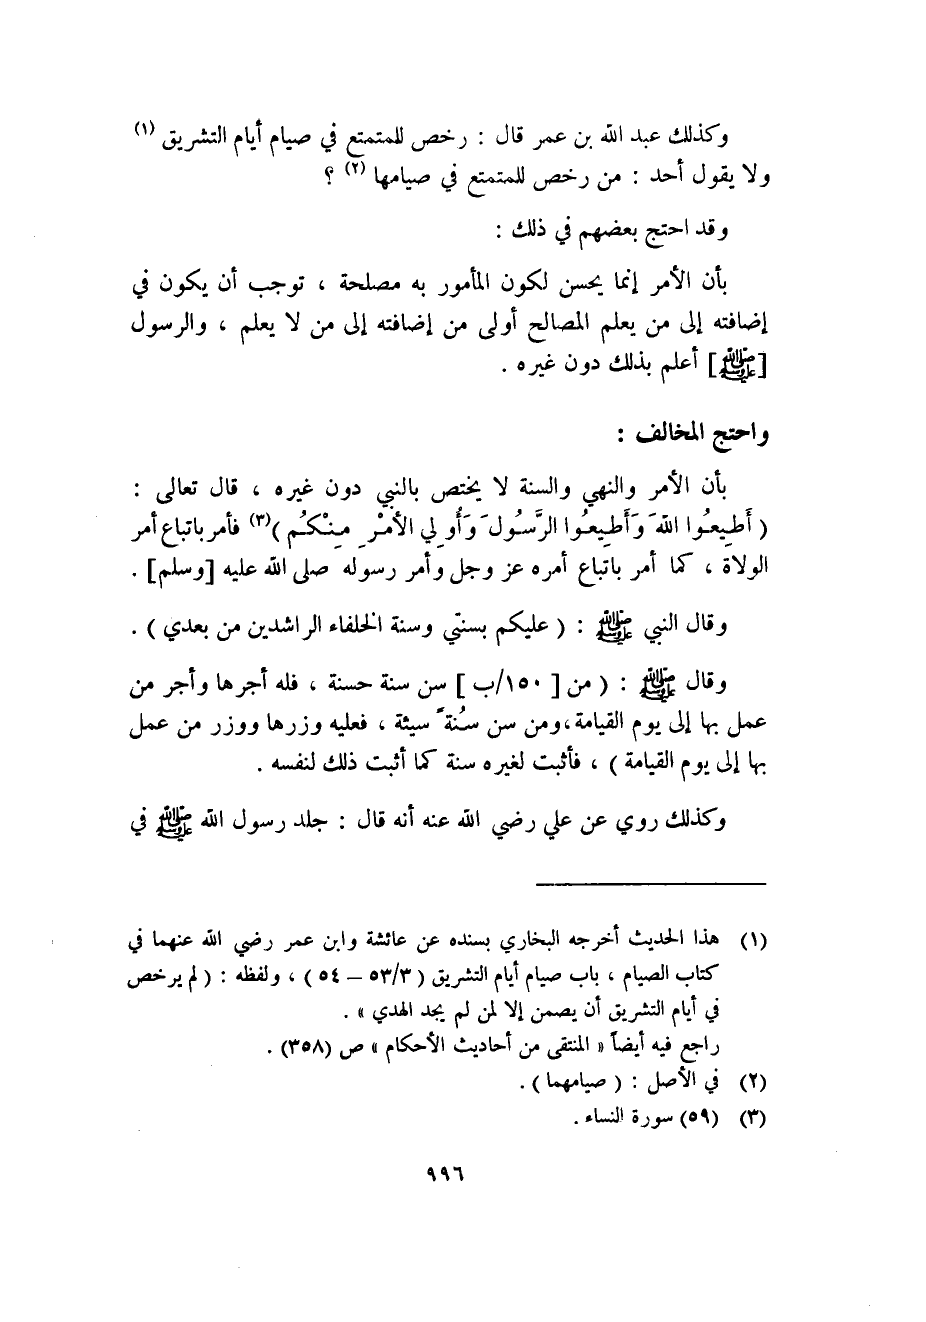 وكذلك عبد الله بن عمر قال : رخص للمتمتع في صيام أيام التشريق (١)
ولا يقول أحد : من رخص للمتمتع في صيامها (٢) ؟
وقد احتج بعضهم في ذلك :
بأن الأمر إنما يحسن لكون المأمور به مصلحة ، توجب أن يكون في
إضافته إلى من يعلم المصالح أولى من إضافته إلى من لا يعلم ، والرسول
[ﷺ] أعلم بذلك دون غيره .
واحتج المخالف :
بأن الأمر والنهي والسنة لا يختص بالنبي دون غيره ، قال تعالى :
( أَطِيعُوا اللهَ وَأَطِيعُوا الرَّسُولَ وَأُولِي الأمْرِ مِنْكُم )(٣) فأمر باتباع أمر
الولاة ، كما أمر باتباع أمره عز وجل وأمر رسوله صلى الله عليه [وسلم] .
وقال النبي ﷺ : ( عليكم بسنتي وسنة الخلفاء الراشدين من بعدي ) .
وقال ﷺ : ( من [ ١٥٠/ب ] سن سنة حسنة ، فله أجرها وأجر من
عمل بها إلى يوم القيامة ،ومن سن سُنة ً سيئة ، فعليه وزرها ووزر من عمل
بها إلى يوم القيامة ) ، فأثبت لغيره سنة كما أثبت ذلك لنفسه .
وكذلك روي عن علي رضي الله عنه أنه قال : جلد رسول الله ﷺ في
(١) هذا الحديث أخرجه البخاري بسنده عن عائشة وابن عمر رضي الله عنهما في
كتاب الصيام ، باب صيام أيام التشريق ( ٥٣/٣ – ٥٤ ) ، ولفظه : ( لم يرخص
في أيام التشريق أن يصمن إلا لمن لم يجد الهدي » .
راجع فيه أيضاً « المنتقى من أحاديث الأحكام » ص (٣٥٨) .
(٢) في الأصل : ( صيامهما ) .
(٣) (٥٩) سورة النساء .
٩٩٦